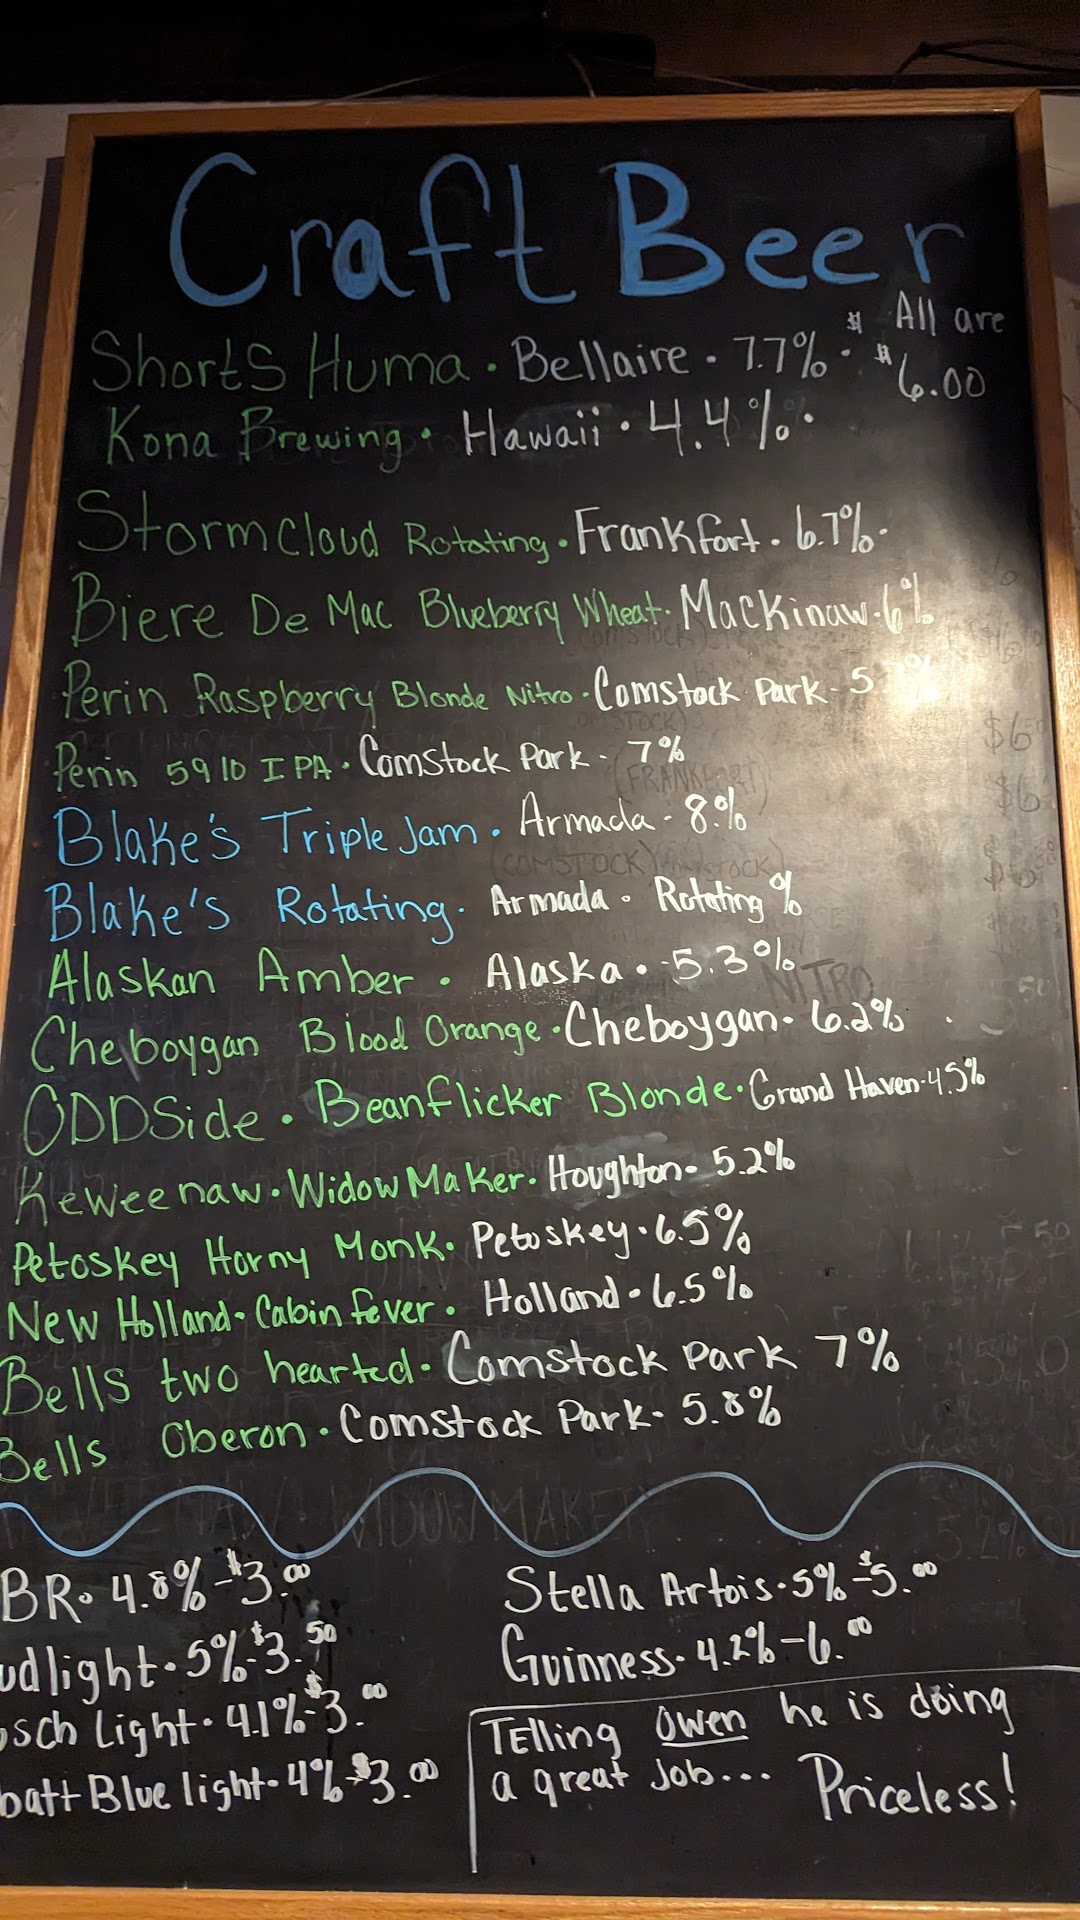 Craft Beer
$ All are
Shorts Huma · Bellaire · 7.7% · $6.00
Kona Brewing · Hawaii · 4.4% ·
Stormcloud Rotating · Frankfort · 6.7% ·
Biere De Mac Blueberry Wheat · Mackinaw · 6%
Perin Raspberry Blonde Nitro · Comstock Park - 5
Perin 5910 IPA · Comstock Park - 7%
Blake's Triple Jam · Armada - 8%
Blake's Rotating · Armada · Rotating %
Alaskan Amber · Alaska · 5.3%
Cheboygan Blood Orange · Cheboygan - 6.2%
ODDSide · Beanflicker Blonde · Grand Haven · 4.5%
Keweenaw · Widow Maker · Houghton - 5.2%
Petoskey Horny Monk · Petoskey · 6.5%
New Holland · Cabin fever · Holland · 6.5%
Bells two hearted · Comstock Park 7%
Bells Oberon · Comstock Park - 5.8%
BR · 4.8% - $3.00
udlight · 5% - $3.50
sch Light · 4.1% - $3.00
batt Blue light - 4% $3.00
Stella Artois · 5% - $5.00
Guinness · 4.2% - 6.00
TElling Owen he is doing
a great job... Priceless!